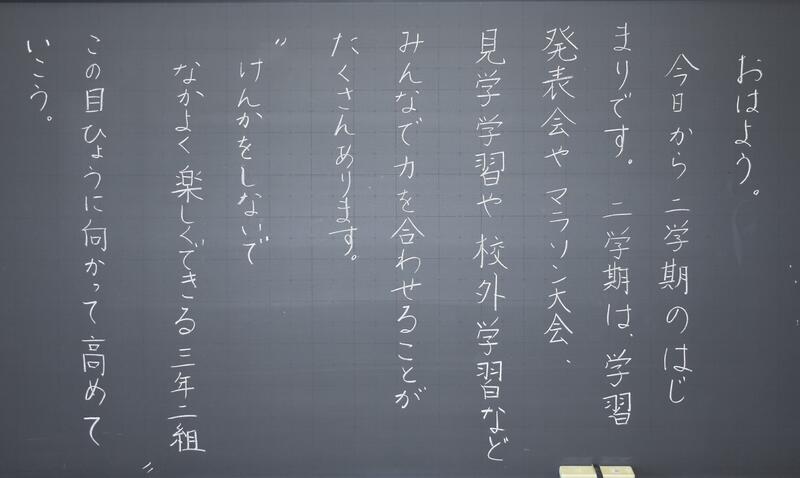 おはよう。
今日から二学期のはじ
まりです。二学期は、学習
発表会やマラソン大会、
見学学習や校外学習など
みんなで力を合わせることが
たくさんあります。
〃けんかをしないで
なかよく楽しくできる三年二組〃
この目ひょうに向かって高めて
いこう。